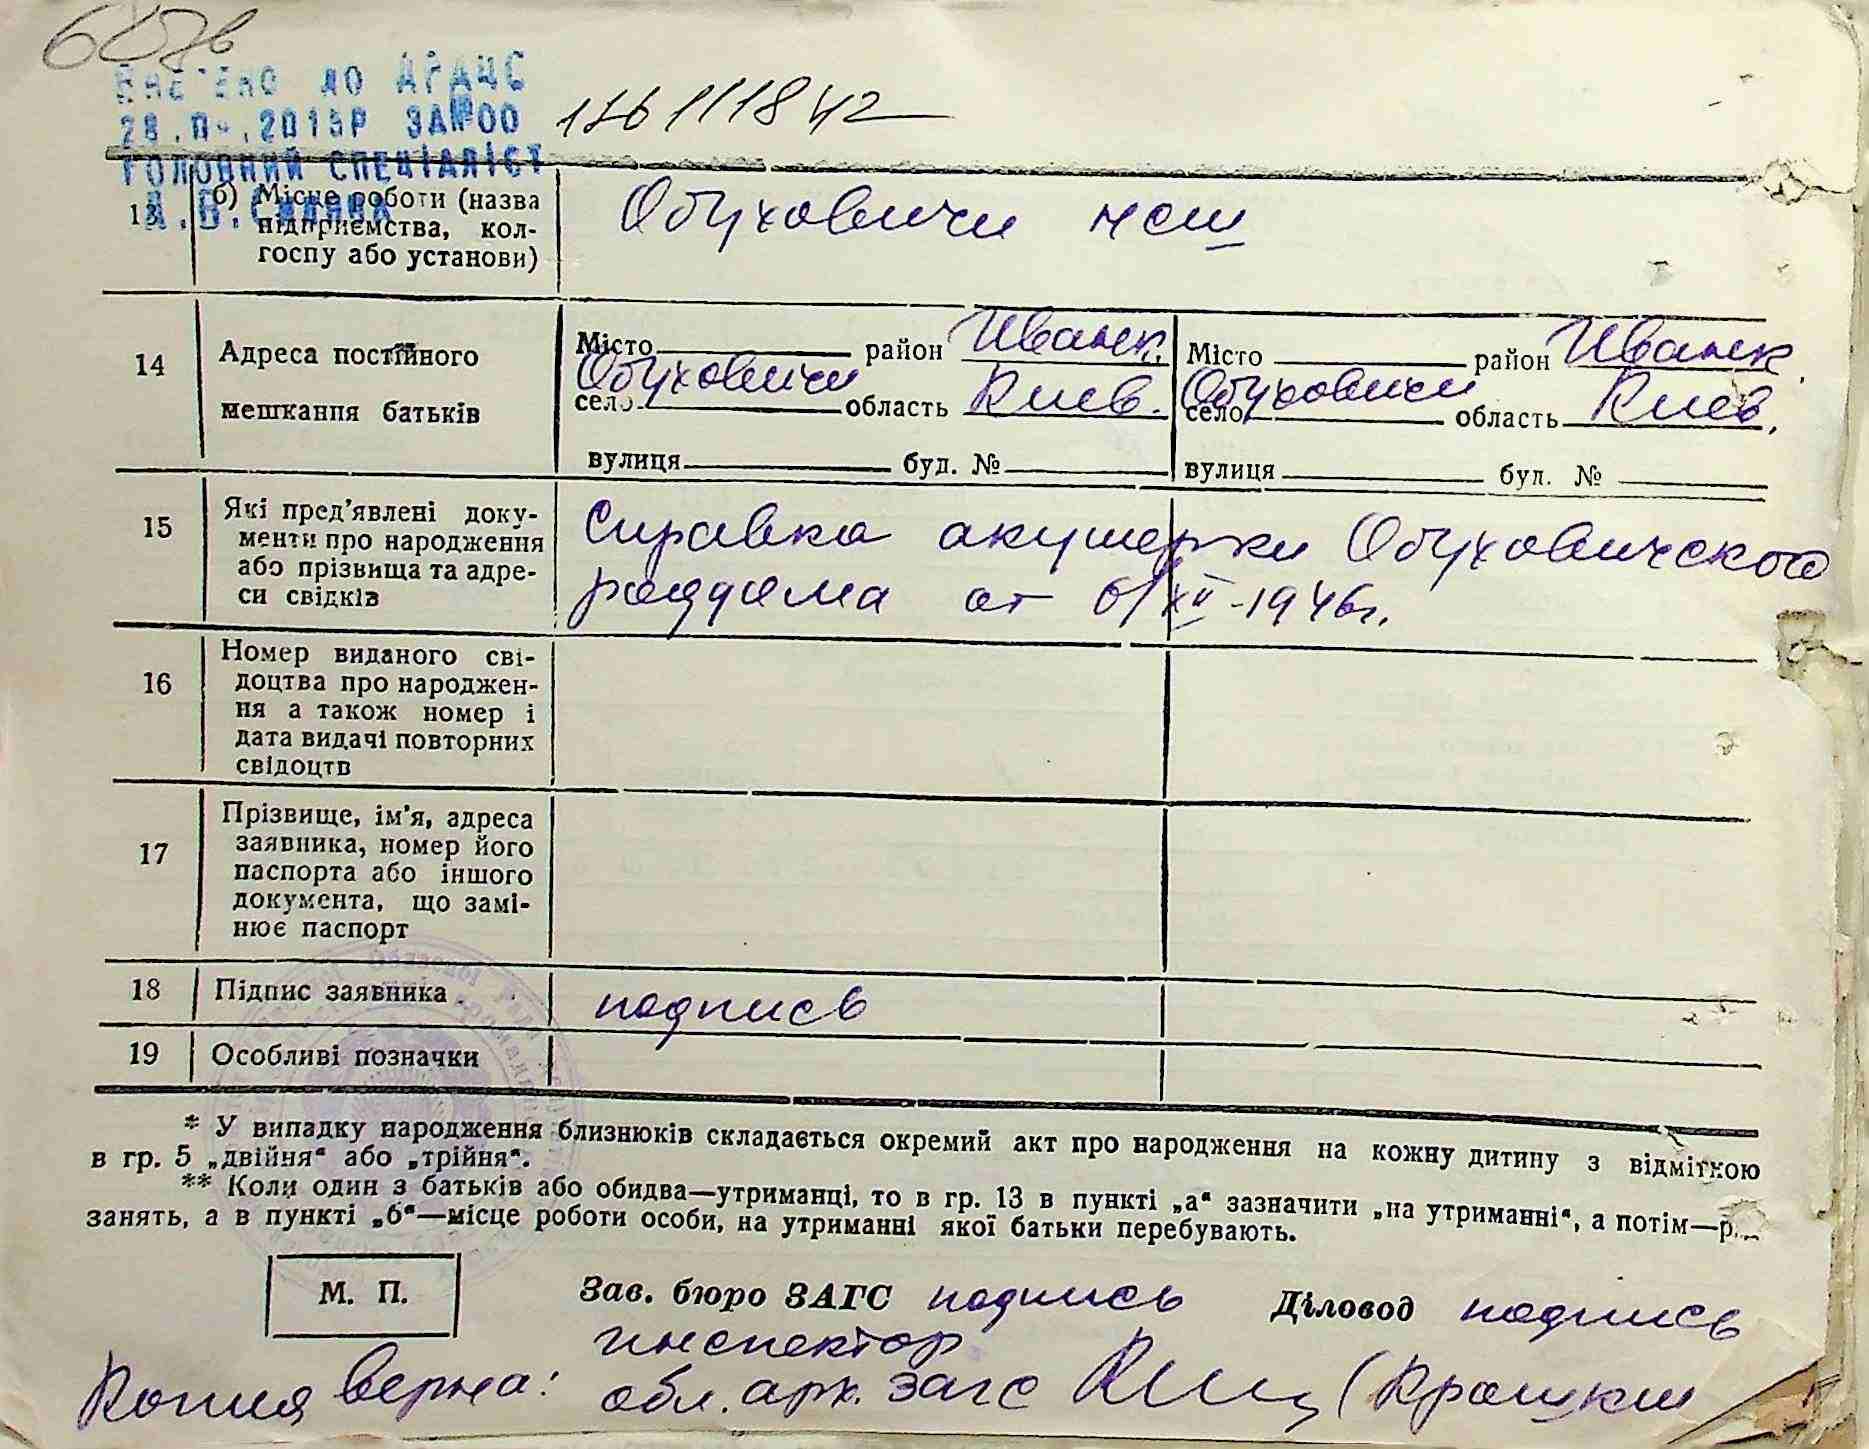 607в
ВНЕСЕНО ДО ДРАЦС
28. .2015Р ЗА №00 1761111842
ГОЛОВНИЙ СПЕЦІАЛІСТ
13 б) Місце роботи (назва
підприємства, кол-
госпу або установи)
Обуховичи нсш
14 Адреса постійного
мешкання батьків
Місто район Иванк.
село Обуховичи область Киев.
вулиця буд. №
Місто район Иванк.
село Обуховичи область Киев.
вулиця буд. №
15 Які пред’явлені доку-
менти про народження
або прізвища та адре-
си свідків
Справка акушерки Обуховичского
роддома от 6/XII-1946г.
16 Номер виданого сві-
доцтва про народжен-
ня а також номер і
дата видачі повторних
свідоцтв
17 Прізвище, ім’я, адреса
заявника, номер його
паспорта або іншого
документа, що замі-
нює паспорт
18 Підпис заявника подпись
19 Особливі позначки
* У випадку народження близнюків складається окремий акт про народження на кожну дитину з відміткою
в гр. 5 „двійня“ або „трійня“.
** Коли один з батьків або обидва—утриманці, то в гр. 13 в пункті „а“ зазначити „на утриманні“, а потім—р
занять, а в пункті „б“—місце роботи особи, на утриманні якої батьки перебувають.
М. П. Зав. бюро ЗАГС подпись Діловод подпись
инспектор
Копия верна: обл. арх. загс (Крашки